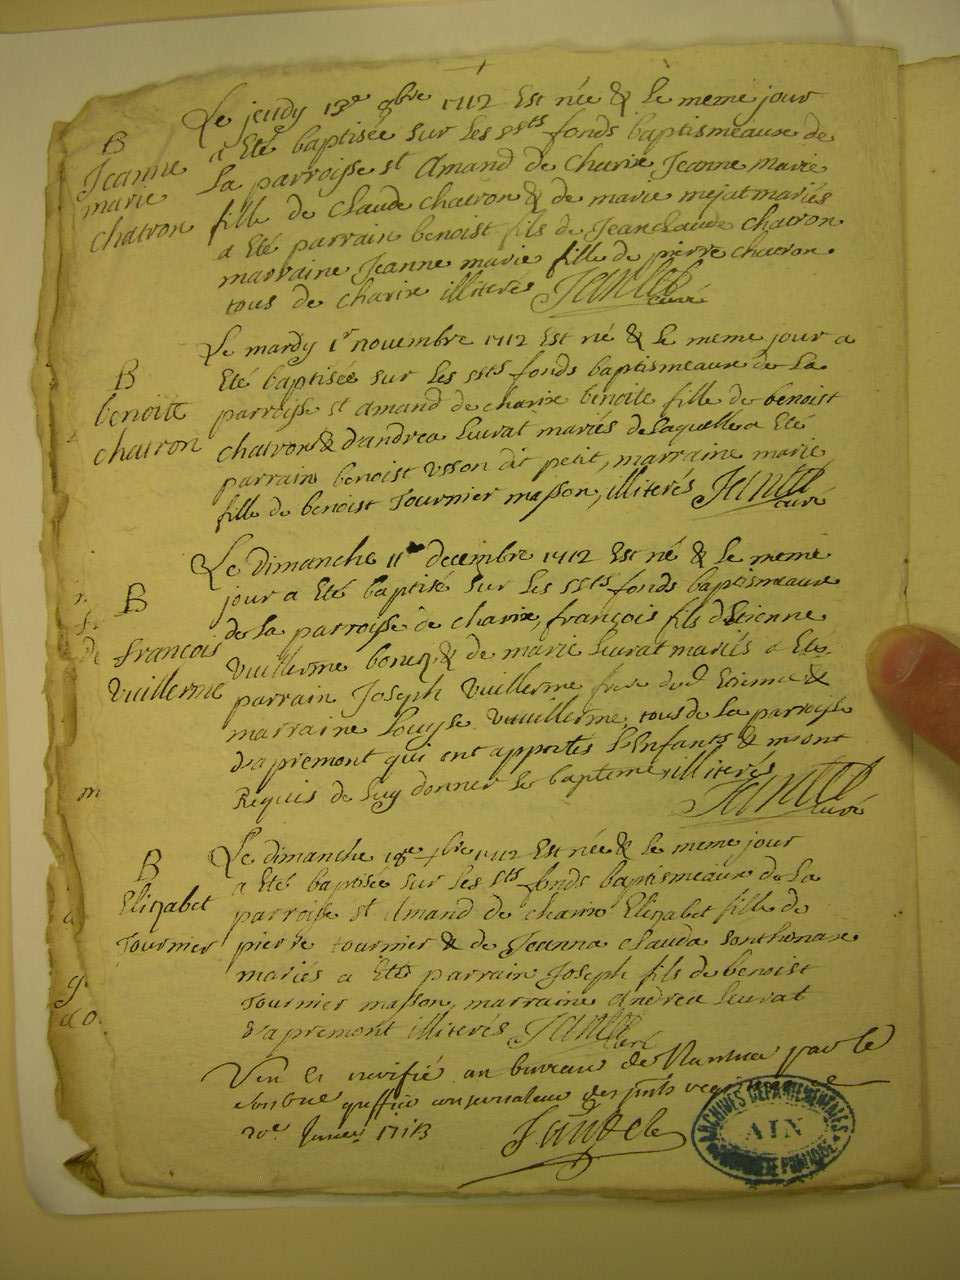 Le jeudy 13e 8bre 1712 Est née & le meme jour
B
Jeanne
marie
chatron
a Eté baptisée sur les ssts fonds baptismeaux de
La parroisse st Amand de charix Jeanne marie
fille de Claude chatron & de marie mejat mariés
a Eté parrain benoist fils de Jean Claude chatron
marraine Jeanne marie fille de pierre chatron
tous de charix illiterés
curé
Le mardy 1r novembre 1712 Est né & le meme jour a
B
benoitte
chatron
Eté baptisée sur les ssts fonds baptismeaux de La
parroisse st Amand de charix benoite fille de benoist
chatron & d'andrea Leurat mariés de Laquelle a Eté
parrain benoist Usson dit petit, marraine marie
fille de benoist Tournier masson, illiterés
curé
Le dimanche 11e decembre 1712 Est né & le meme
B
françois
Vuillerme
jour a Eté baptisé sur les ssts fonds baptismeaux
de La parroisse de charix, françois fils d'Etienne
Vuillerme & de marie Leurat mariés a Eté
parrain Joseph Vuillerme frere dud Etienne &
marraine Louyse Vuuillerme tous de La parroisse
d'apremont qui ont apportés L'Enfant & m'ont
Requis de Luy donner Le bapteme illiterés
curé
Le dimanche 18e xbre 1712 Est née & le meme jour
B
Elizabet
Tournier
a Eté baptisée sur les ssts fonds baptismeaux de La
parroisse st Amand de charix Elizabet fille de
pierre tournier & de Jeanna Clauda Sonthonax
mariés a Eté parrain Joseph fils de benoist
Tournier masson, marraine Andrea Leurat
d'apremont illiterés
curé
Veu et verifié au bureau de Nantua par le
greffier conservateur des
20e Janvier 1713
ARCHIVES DEPARTEMENTALES
AIN